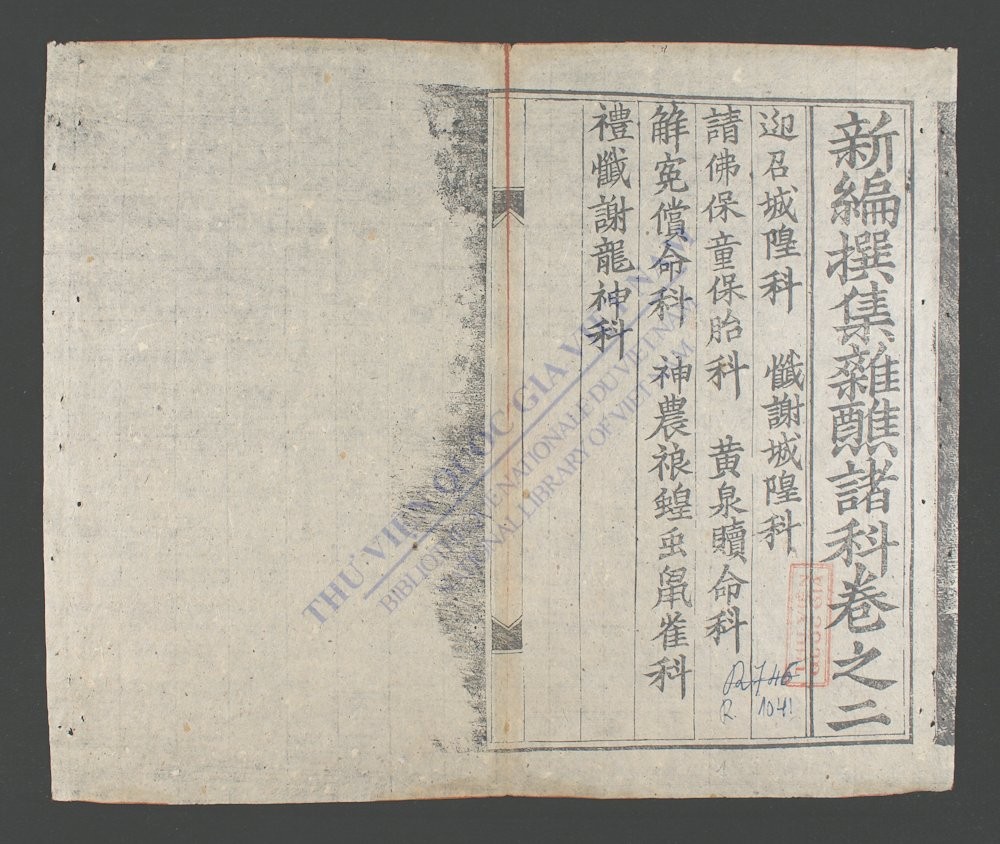 新編撰集雜醮諸科卷之二
迎召城隍科 懺謝城隍科
請佛保童保胎科 黄泉贖命科
解寃償命科 神農祿蝗虫鼠雀科
禮懺謝龍神科
R 746
R 1041
THƯ VIỆN QUỐC GIA VIỆT NAM
BIBLIOTHÈQUE NATIONALE DU VIETNAM
NATIONAL LIBRARY OF VIETNAM